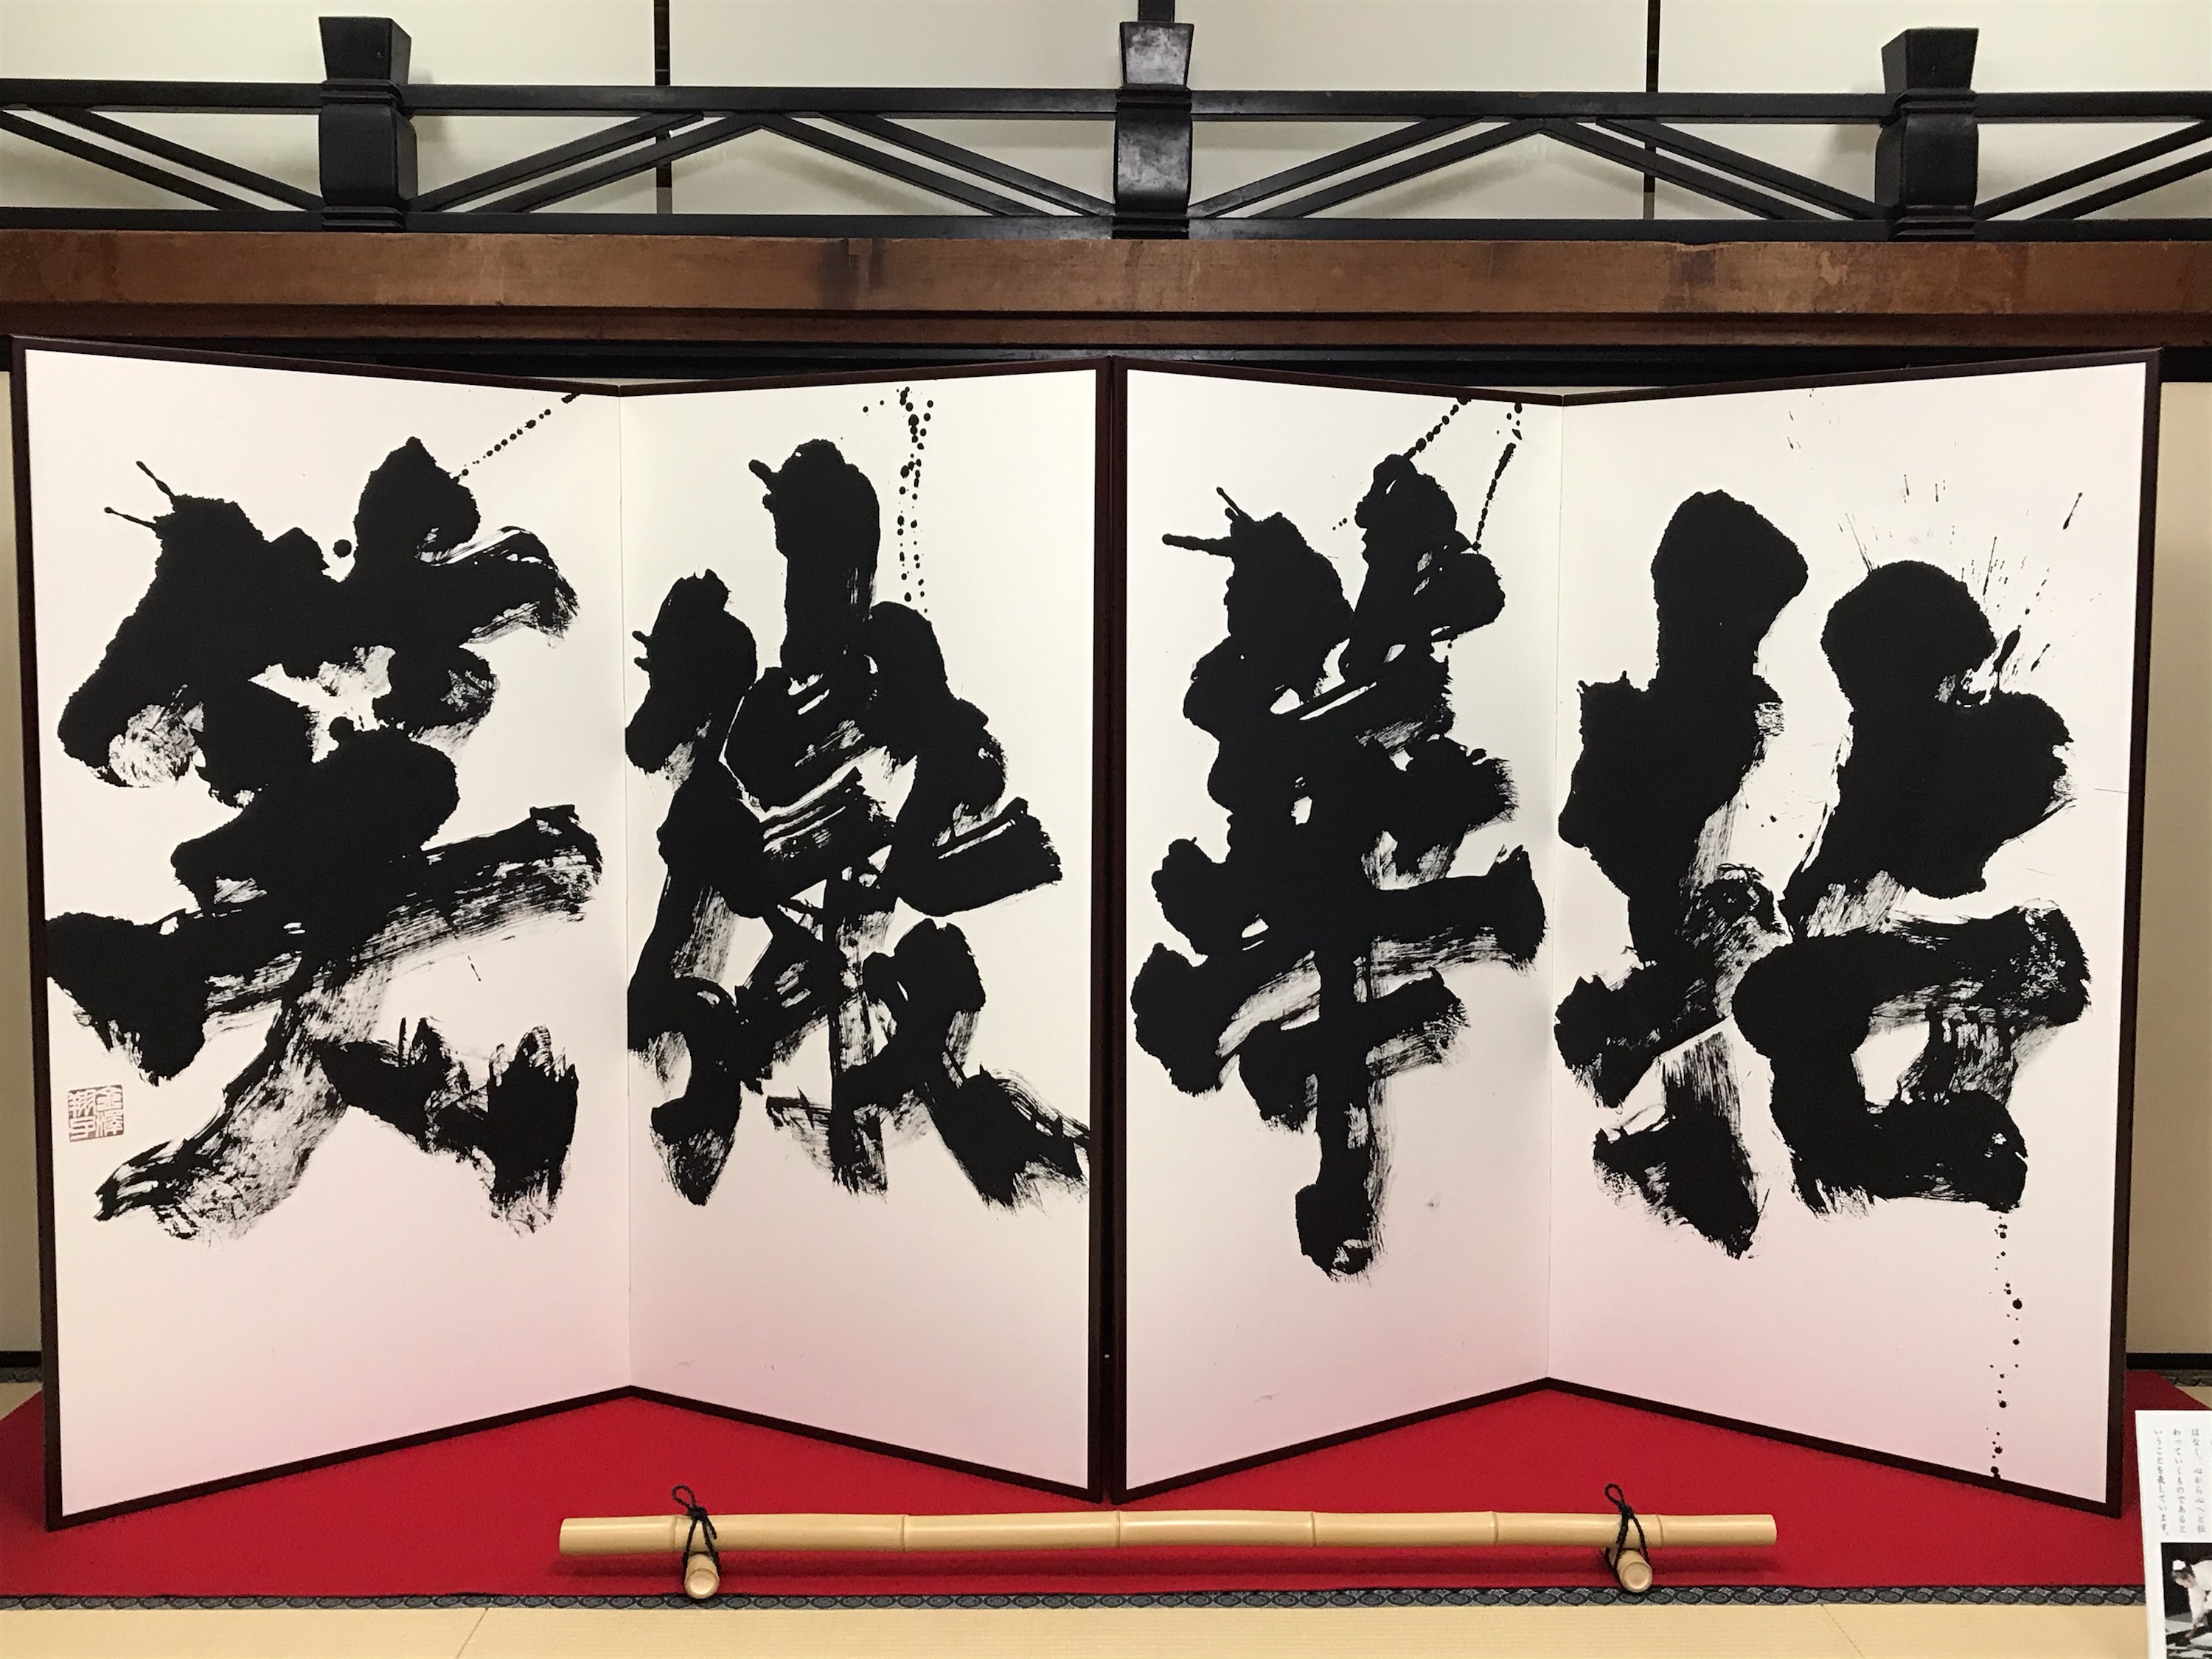 拈華微笑
金澤
翔子
はなく、心から心へと伝
わっていくものであると
いうことを表しています。